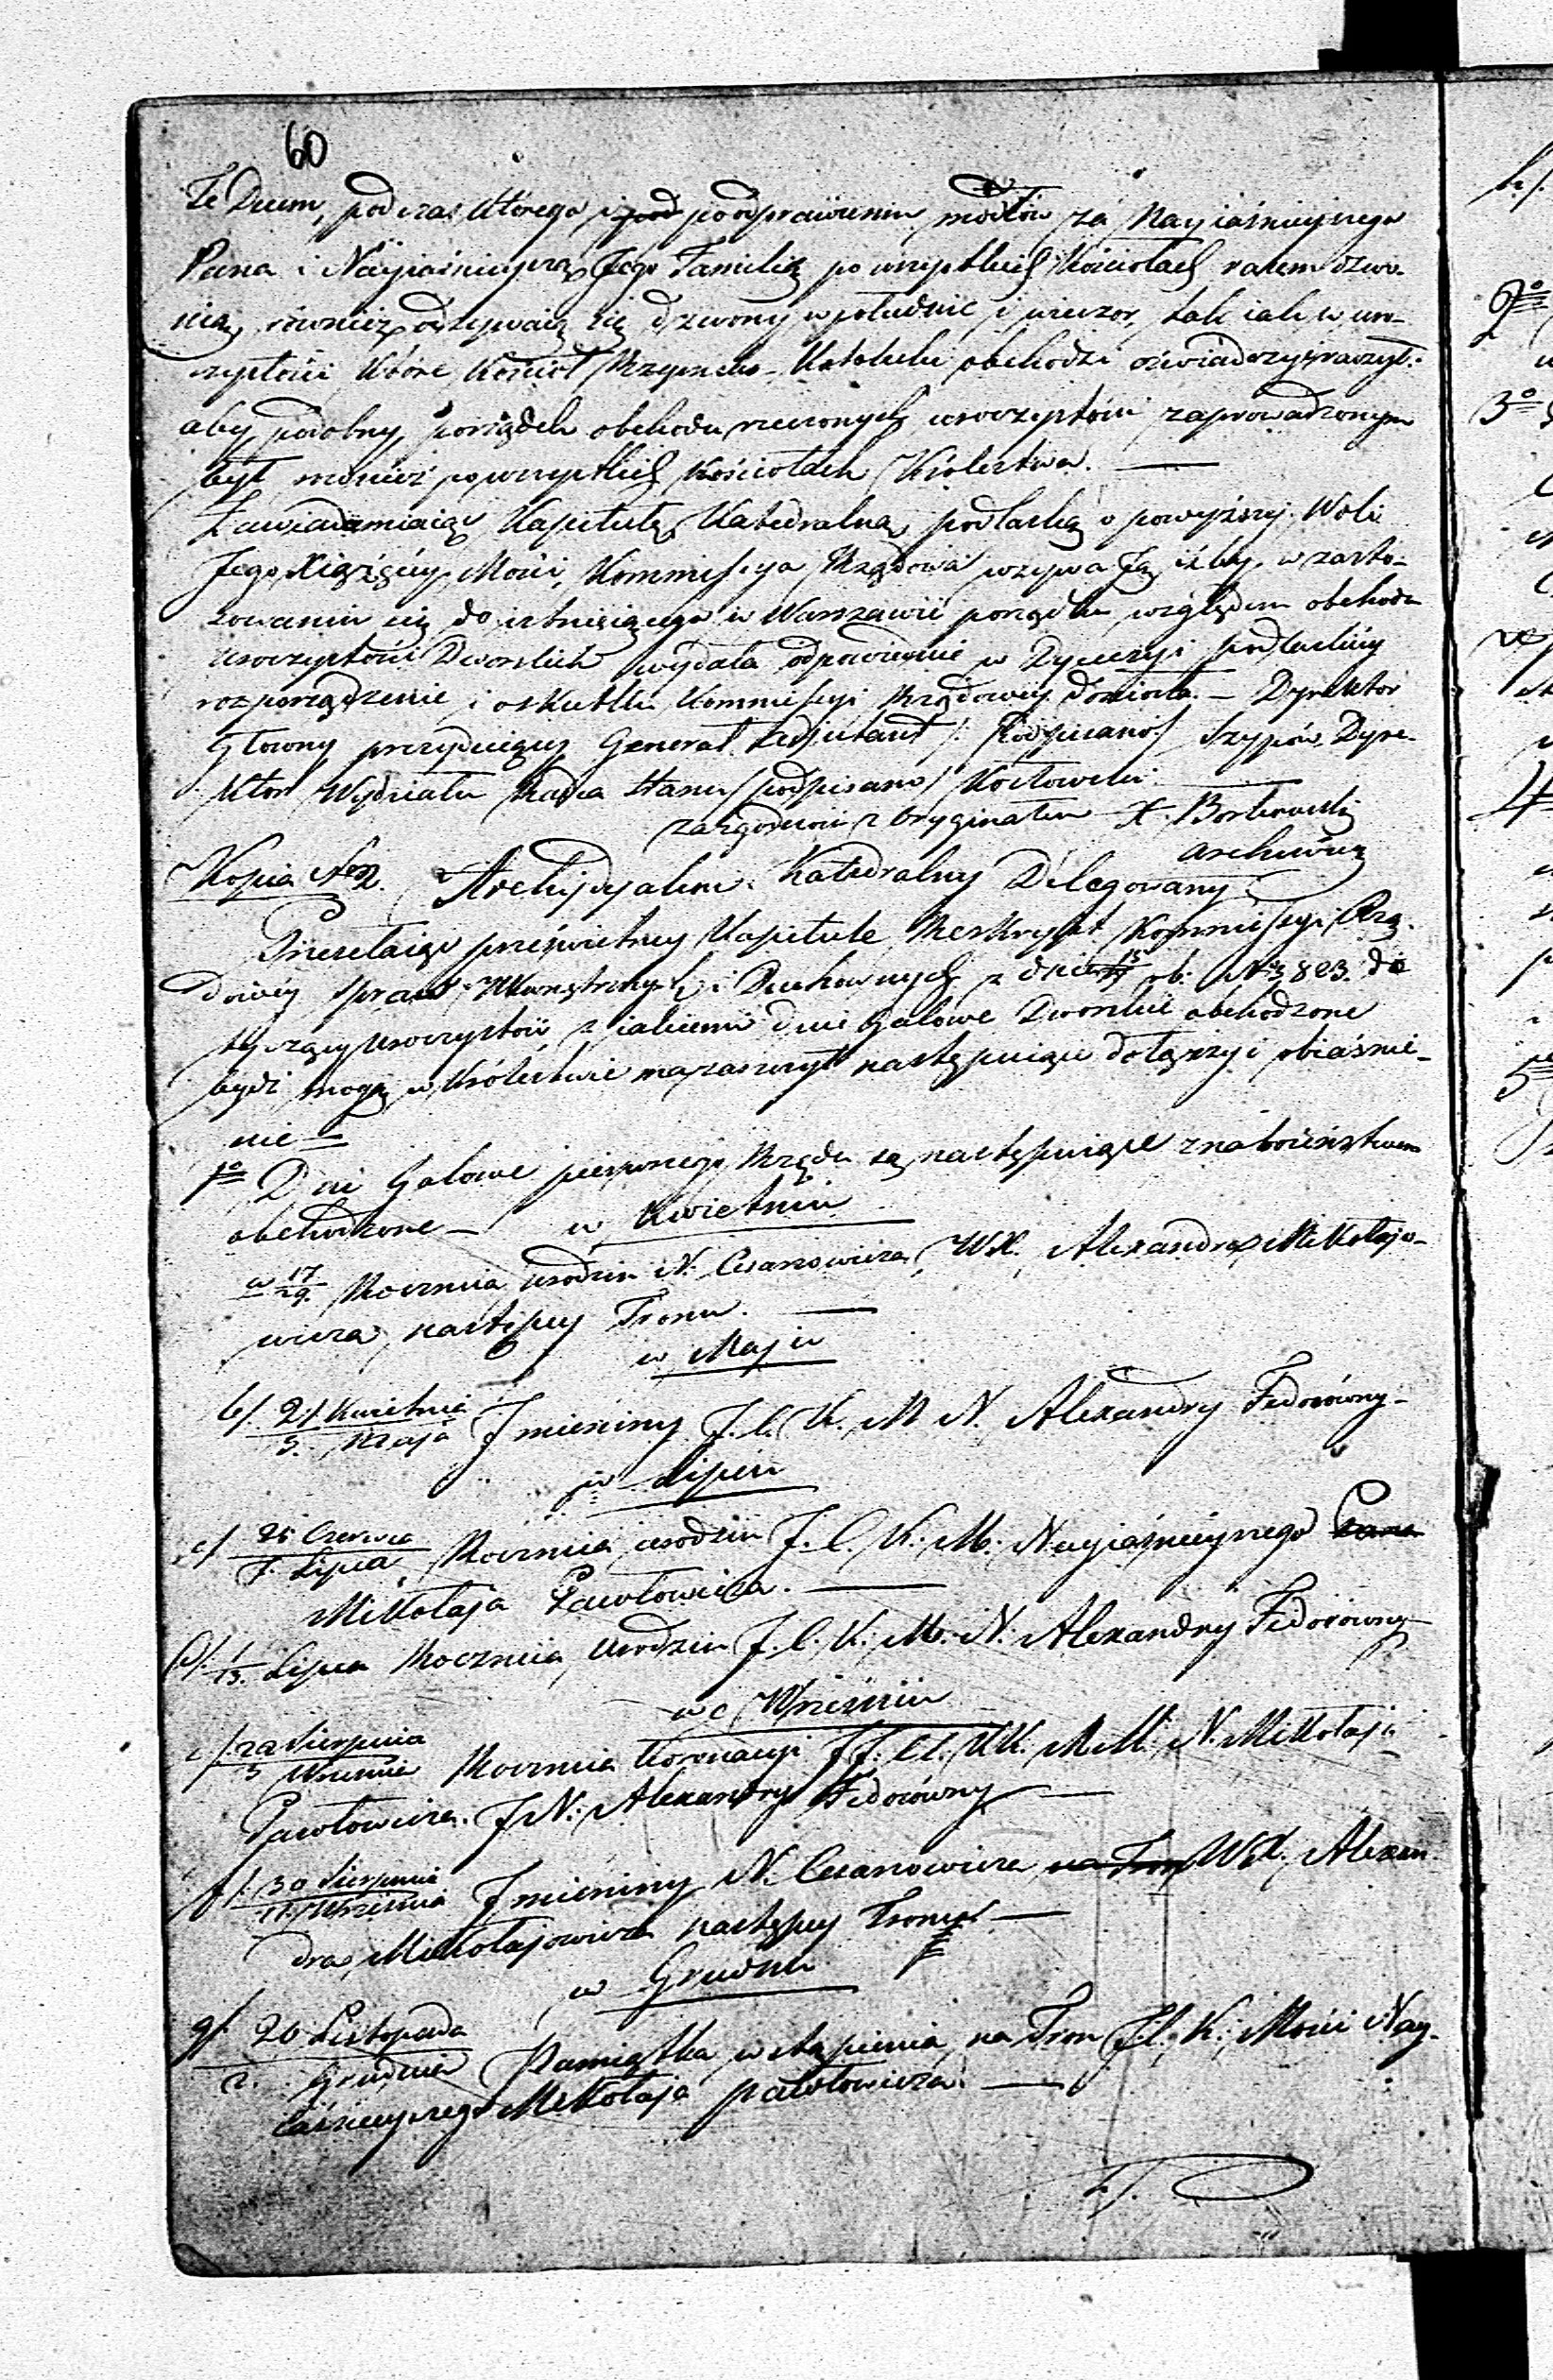 60
Te Deum, podczas którego i pod po odprawieniu modłów za Nayiaśnieyszego
Pana i Nayiaśnieyszą Jego Familią po wszystkich Kościołach razem dzwo-
nią, również odzywaią się dzwony w południe i wieczor, tak iak w uro-
czystości które Kościoł Rzymsko-Katolicki obchodzi oświadczyć raczył:
aby podobny porządek obchodu rzeczonych uroczystości zaprowadzonym
był również po wszystkich Kościołach Królestwa. —
Zawiadamiaiąc Kapitułę Katedralną podlaską o powyższej Woli
Jego Xiążęcey Mości, Kommissya Rządowa wzywa Ją iżby w zasto-
sowaniu się do istnieiącego w Warszawie porządku względem obchodu
uroczystości Dworskich wydała odpowiednie w Dyecezyi podlaskiey
rozporządzenie i o skutku Kommissyi Rządowey doniosła. — Dyrektor
Głowny prezyduiący Generał Adjutant /: Podpisano:/ Szypów, Dyre-
ktor Wydziału Radca Stanu /podpisano/ Kozłowski.
za zgodność z Oryginałem X. Borkowski
Archiwista
Kopia No 2. Archidyakon Katedralny Delegowany
Przesełaiąc prześwietney Kapitule Reskrypt Kommissyi Rzą-
dowéy Spraw Wewnętrznych i Duchownych z dnia 13 rb. No 3823. do
tyczący uroczystości, z iakiemi dnie Galowe Dworskie obchodzone
bydź mogą w Królestwie ma zaszczyt następuiące dołączyć obiaśnie-
nie —
1o Dni Galowe pierwszego Rzędu są następuiące z nabożeństwem
obchodzone — w Kwietniu
a 17/29. Rocznica urodzin N. Cesarzewicza, W.X. Alexandra Mikołaio-
wicza, następcy Tronu. —
w Maju
b/ 21 Kwietnia / 3. Maja Jmieniny J. C. K. M N. Alexandry Fedorówny —
w Lipcu
c/ 25 Czerwca / 7. Lipca, Rocznica urodzin J. C. K: M: Nayiaśnieyszego Pana
Mikołaja Pawłowicza. —
d/ 1/13. Lipca Rocznica Urodzin J. C. K: M: N: Alexandry Fedorówny —
we Wrześniu
e/ 22 Sierpnia / 3 Września Rocznica Koronacyi JJ. CC. KK. MM. N. Mikołaja
Pawłowicza. J N: Alexandry Fedorówny —
f/ 30 Sierpnia / 11. Września Jmieniny N. Cesarzewicza na Tron W.X. Alexan-
dra, Mikołajowicza następcy Tronu. —
w Grudniu
g/ 20 Listopada / 2. Grudnia Pamiątka wstąpienia na Tron J. C. K: Mości Nay-
iaśnieyszego Mikołaja Pawłowicza. —